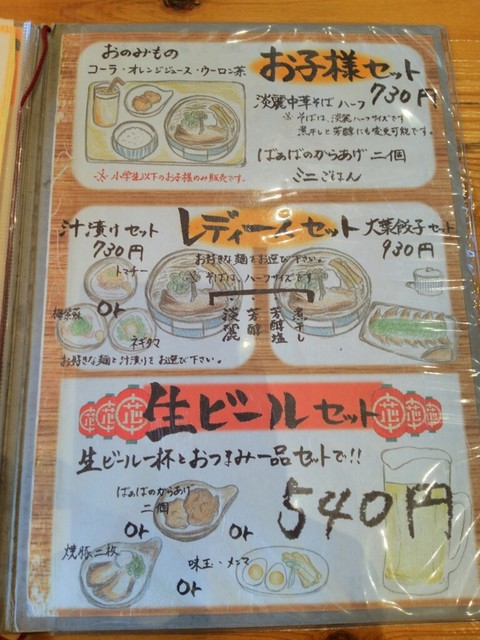 おのみもの
コーラ・オレンジジュース・ウーロン茶
お子様セット
730円
淡麗中華そばハーフ
※そばは、淡麗ハーフサイズです
煮干しと芳醇にも変更可能です。
ばぁばのからあげ二個
ミニごはん
※小学生以下のお子様のみ販売です。
レディースセット
汁漬りセット
730円
大葉餃子セット
930円
お好きな麺をお選び下さい。
※そばは、ハーフサイズです
トマチー
or
ネギタマ
淡麗
芳醇
芳醇塩
煮干し
お好きな麺と汁漬りをお選び下さい。
生ビールセット
生ビール一杯とおつまみ一品セットで!!
540円
ばぁばのからあげ
二個
or
or
焼豚二枚
味玉・メンマ
or